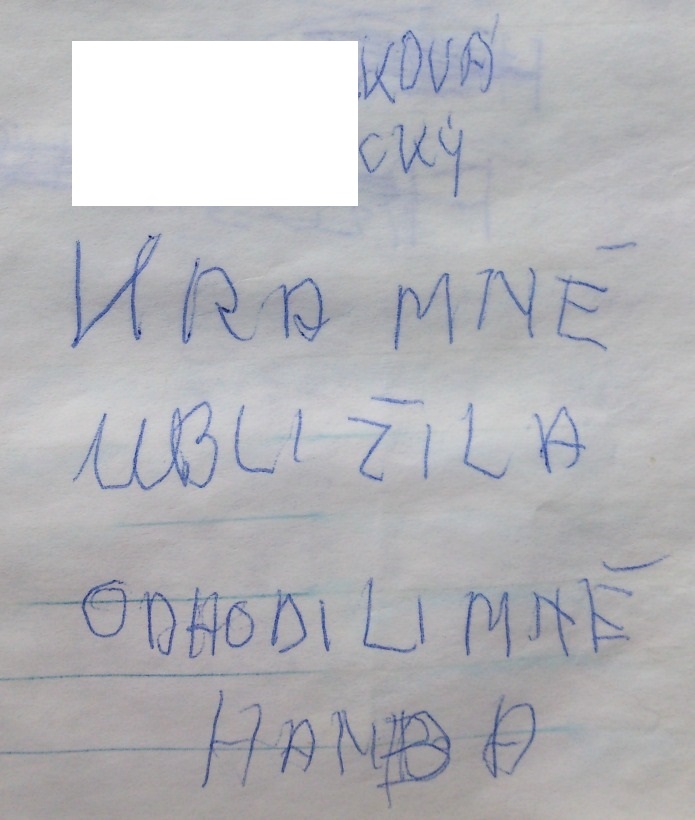 KOVÁ
CKÝ
HRA MNĚ
UBLIŽILA
ODHODILI MNĚ
HANBA